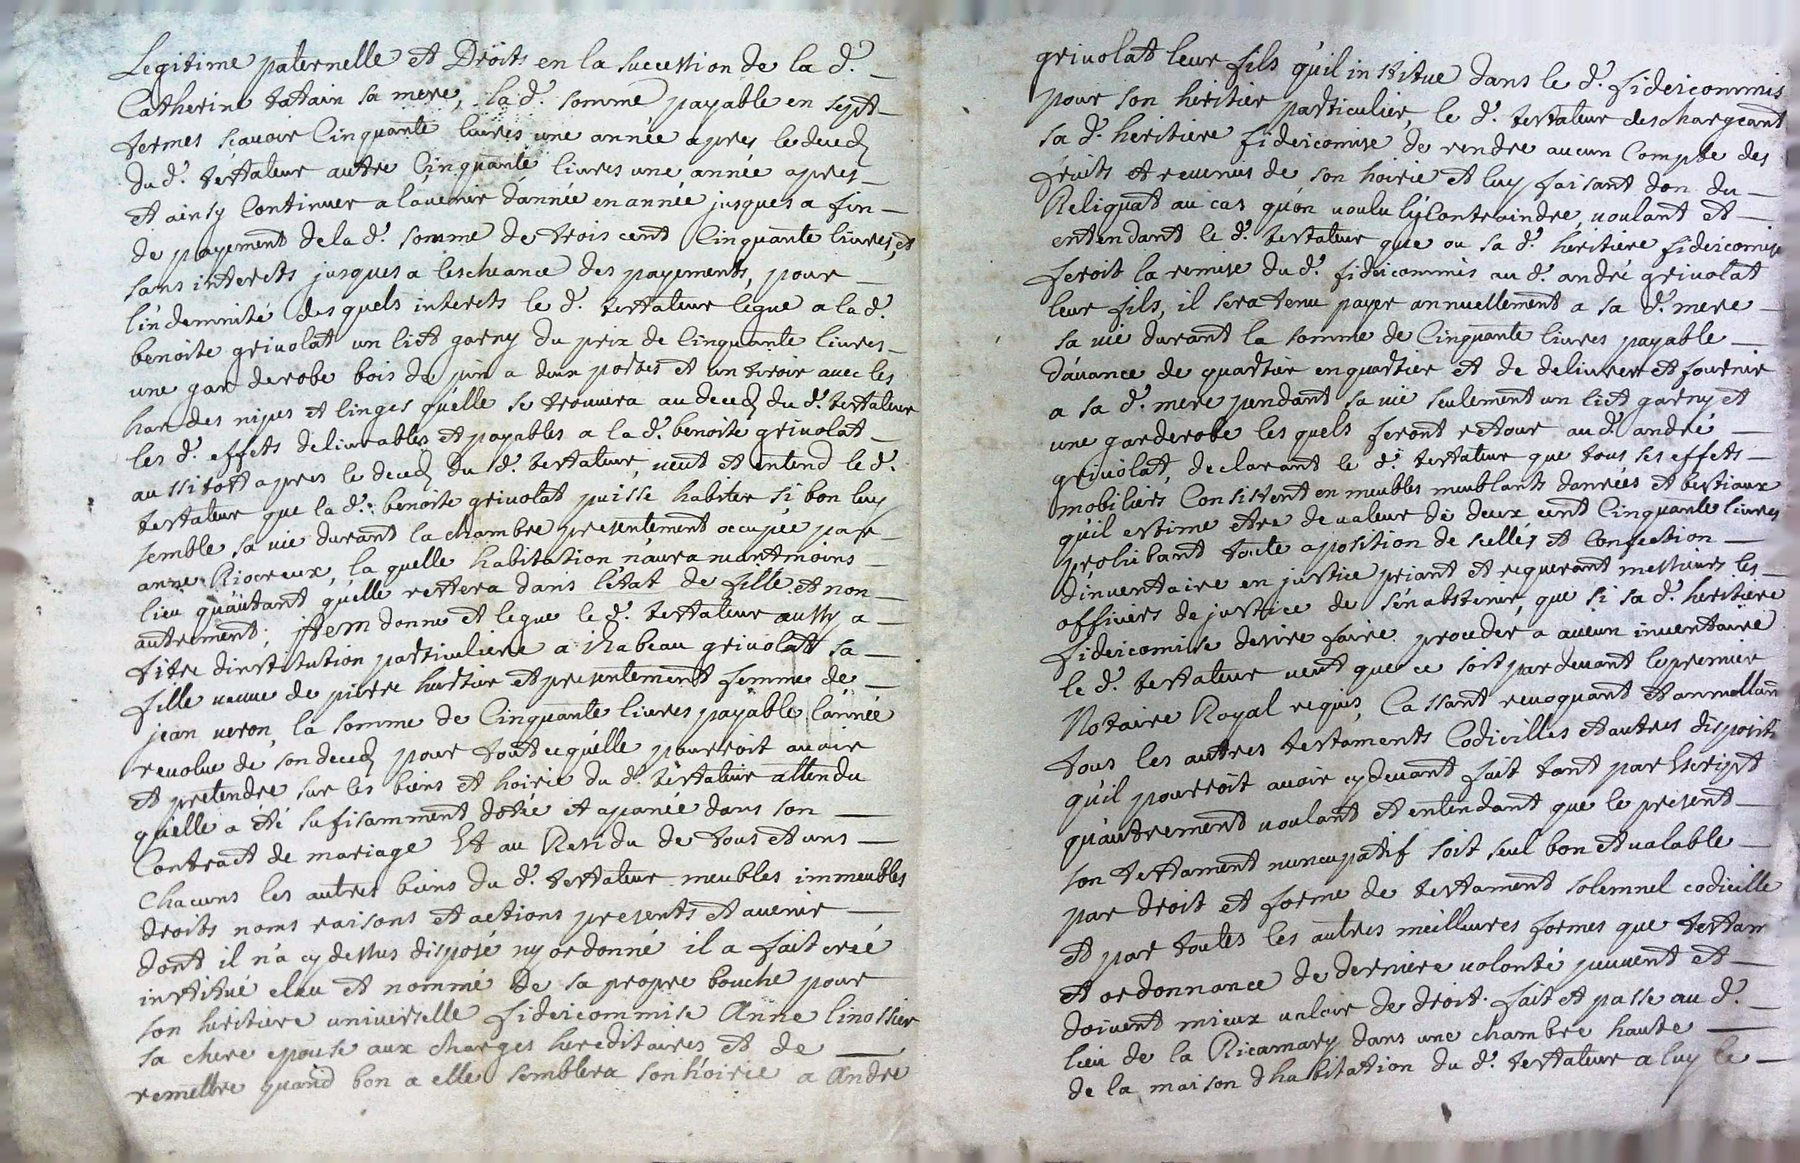 Legitime paternelle et Droits en la succession de la d.
Catherine tatain sa mere, la d. somme payable en sept
termes scavoir Cinquante livres une année apres le deced
du d. testateur autre Cinquante livres une année apres
et ainsy Continuer a l'avenir d'année en année jusques a fin
de payement de la d. somme de trois cent Cinquante livres, et
sans interets jusques a lescheance des payements, pour
l'indemnité desquels interets le d. testateur legue a la d.
benoite grivolat un lict garny du prix de Cinquante livres
une garderobe bois de pin a deux portes et un tiroir avec les
hardes nipes et linges qu'elle se trouvera au deced du d. testateur
les d. effets delivrables et payables a la d. benoite grivolat
aussitott apres le deced du d. testateur, veut et entend le d.
testateur que la d. benoite grivolat puisse habiter si bon luy
semble sa vie durant la chambre presentement occupée par
anne Riocreux, la quelle habitation n'aura neantmoins
lieu qu'autant qu'elle restera dans l'état de fille et non
autrement; jtem donne et legue le d. testateur aussy a
titre dinstitution particuliere a isabeau grivolat sa
fille veuve de pierre hertier et presentement femme de
jean veron, la somme de Cinquante livres payable l'année
revolue de son deced pour tout ce qu'elle pourroit avoir
et pretendre sur les biens et hoirie du d. testateur attendu
qu'elle a été sufisamment dotée et apanée dans son
Contract de mariage Et au Residu de tous et uns
Chacuns les autres biens du d. testateur meubles immeubles
droits noms raisons et actions presents et avenir
dont il n'a cy dessus disposé ny ordonné il a fait creé
institué eleu et nommé de sa propre bouche pour
son heritiere universelle fideicommise Anne linossier
sa chere epouse aux charges hereditaires et de
remettre quand bon a elle semblera son hoirie a André
grivolat leur fils qu'il institue dans le d. fideicommis
pour son heritier particulier, le d. testateur deschargeant
sa d. heritiere fideicomise de rendre aucun Compte des
fruits et revenus de son hoirie et luy faisant don du
Reliquat au cas qu'on voulu l'y Contraindre, voulant et
entendant le d. testateur que ou sa d. heritiere fideicomise
feroit la remise du d. fideicommis au d. andré grivolat
leur fils, il sera tenu payer annuellement a sa d. mere
sa vie durant la somme de Cinquante livres payable
d'avance de quartier en quartier et de delivrer et fournir
a sa d. mere pendant sa vie seulement un lict garny et
une garderobe les quels feront retour au d. andré
grivolat, declarant le d. testateur que tous ses effets
mobiliers Consistent en meubles meublants danrées et bestiaux
qu'il estime etre de valeur de deux cent Cinquante livres
prohibant toute aposition de scellés et Confection
d'inventaire en justice priant et requerant messieurs les
officiers de justice de s'en abstenir, que si sa d. heritiere
fideicomise desire faire proceder a aucun inventaire
le d. testateur veut que ce soit par devant le premier
Notaire Royal requis, Cassant revoquant et annullant
tous les autres testaments Codicilles et autres dispositi
qu'il pourroit avoir cy devant fait tant par Escript
qu'autrement voulant et entendant que le present
son testament nuncupatif soit seul bon et valable
par droit et forme de testament solemnel codicille
et par toutes les autres meilleures formes que testam
et ordonnance de derniere volonté peuvent et
doivent mieux valoir de droit. fait et passe au d.
lieu de la Ricamary dans une chambre haute
de la maison dhabitation du d. testateur a luy le